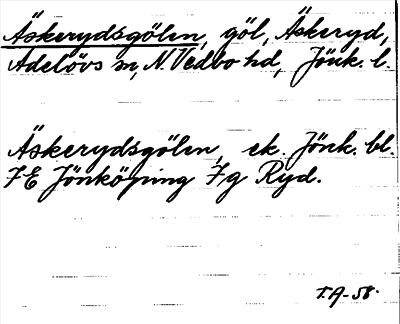 Äskerydsgölen, göl, Äskeryd,
Adelövs sn, N. Vedbo hd, Jönk. l.
Äskerydsgölen, ek. Jönk. bl.
7E Jönköping 7g Ryd.
T.A-58.